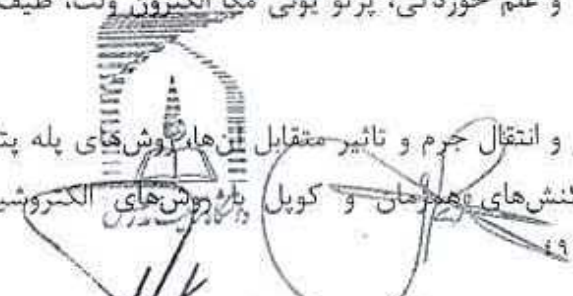 و علم خوردگی، پرتو یونی مگا الکترون ولت، طیف
و انتقال جرم و تاثیر متقابل آن‌ها، روش‌های پله پتا
کنش‌های همزمان و کوپل با روش‌های الکتروشی
۴۹